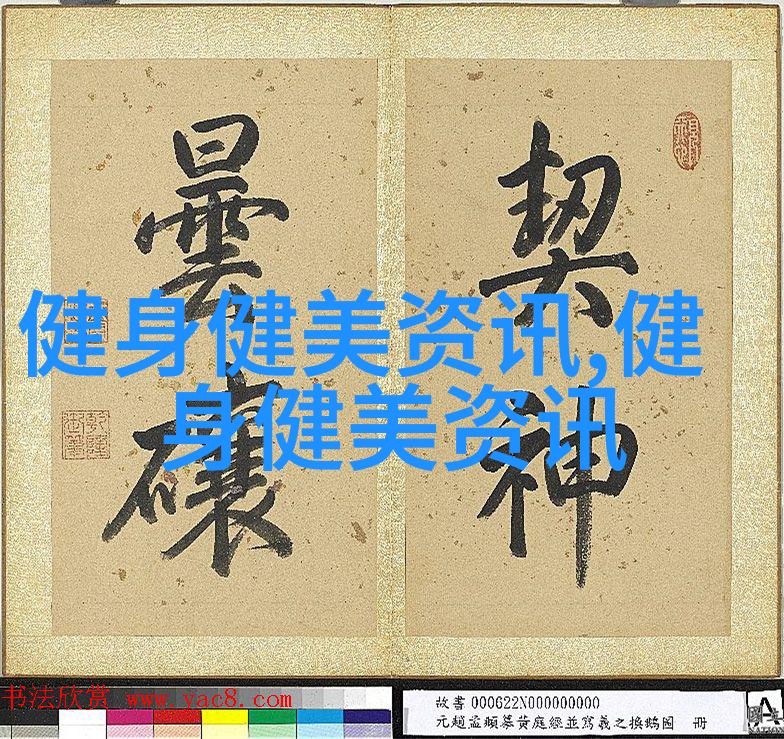 契神
曇
健身健美资讯,健
身健美资讯
书法欣赏 www.yac8.com
故書000622N000000000
元趙孟頫摹黃庭經並寫羲之換鵝圖 冊